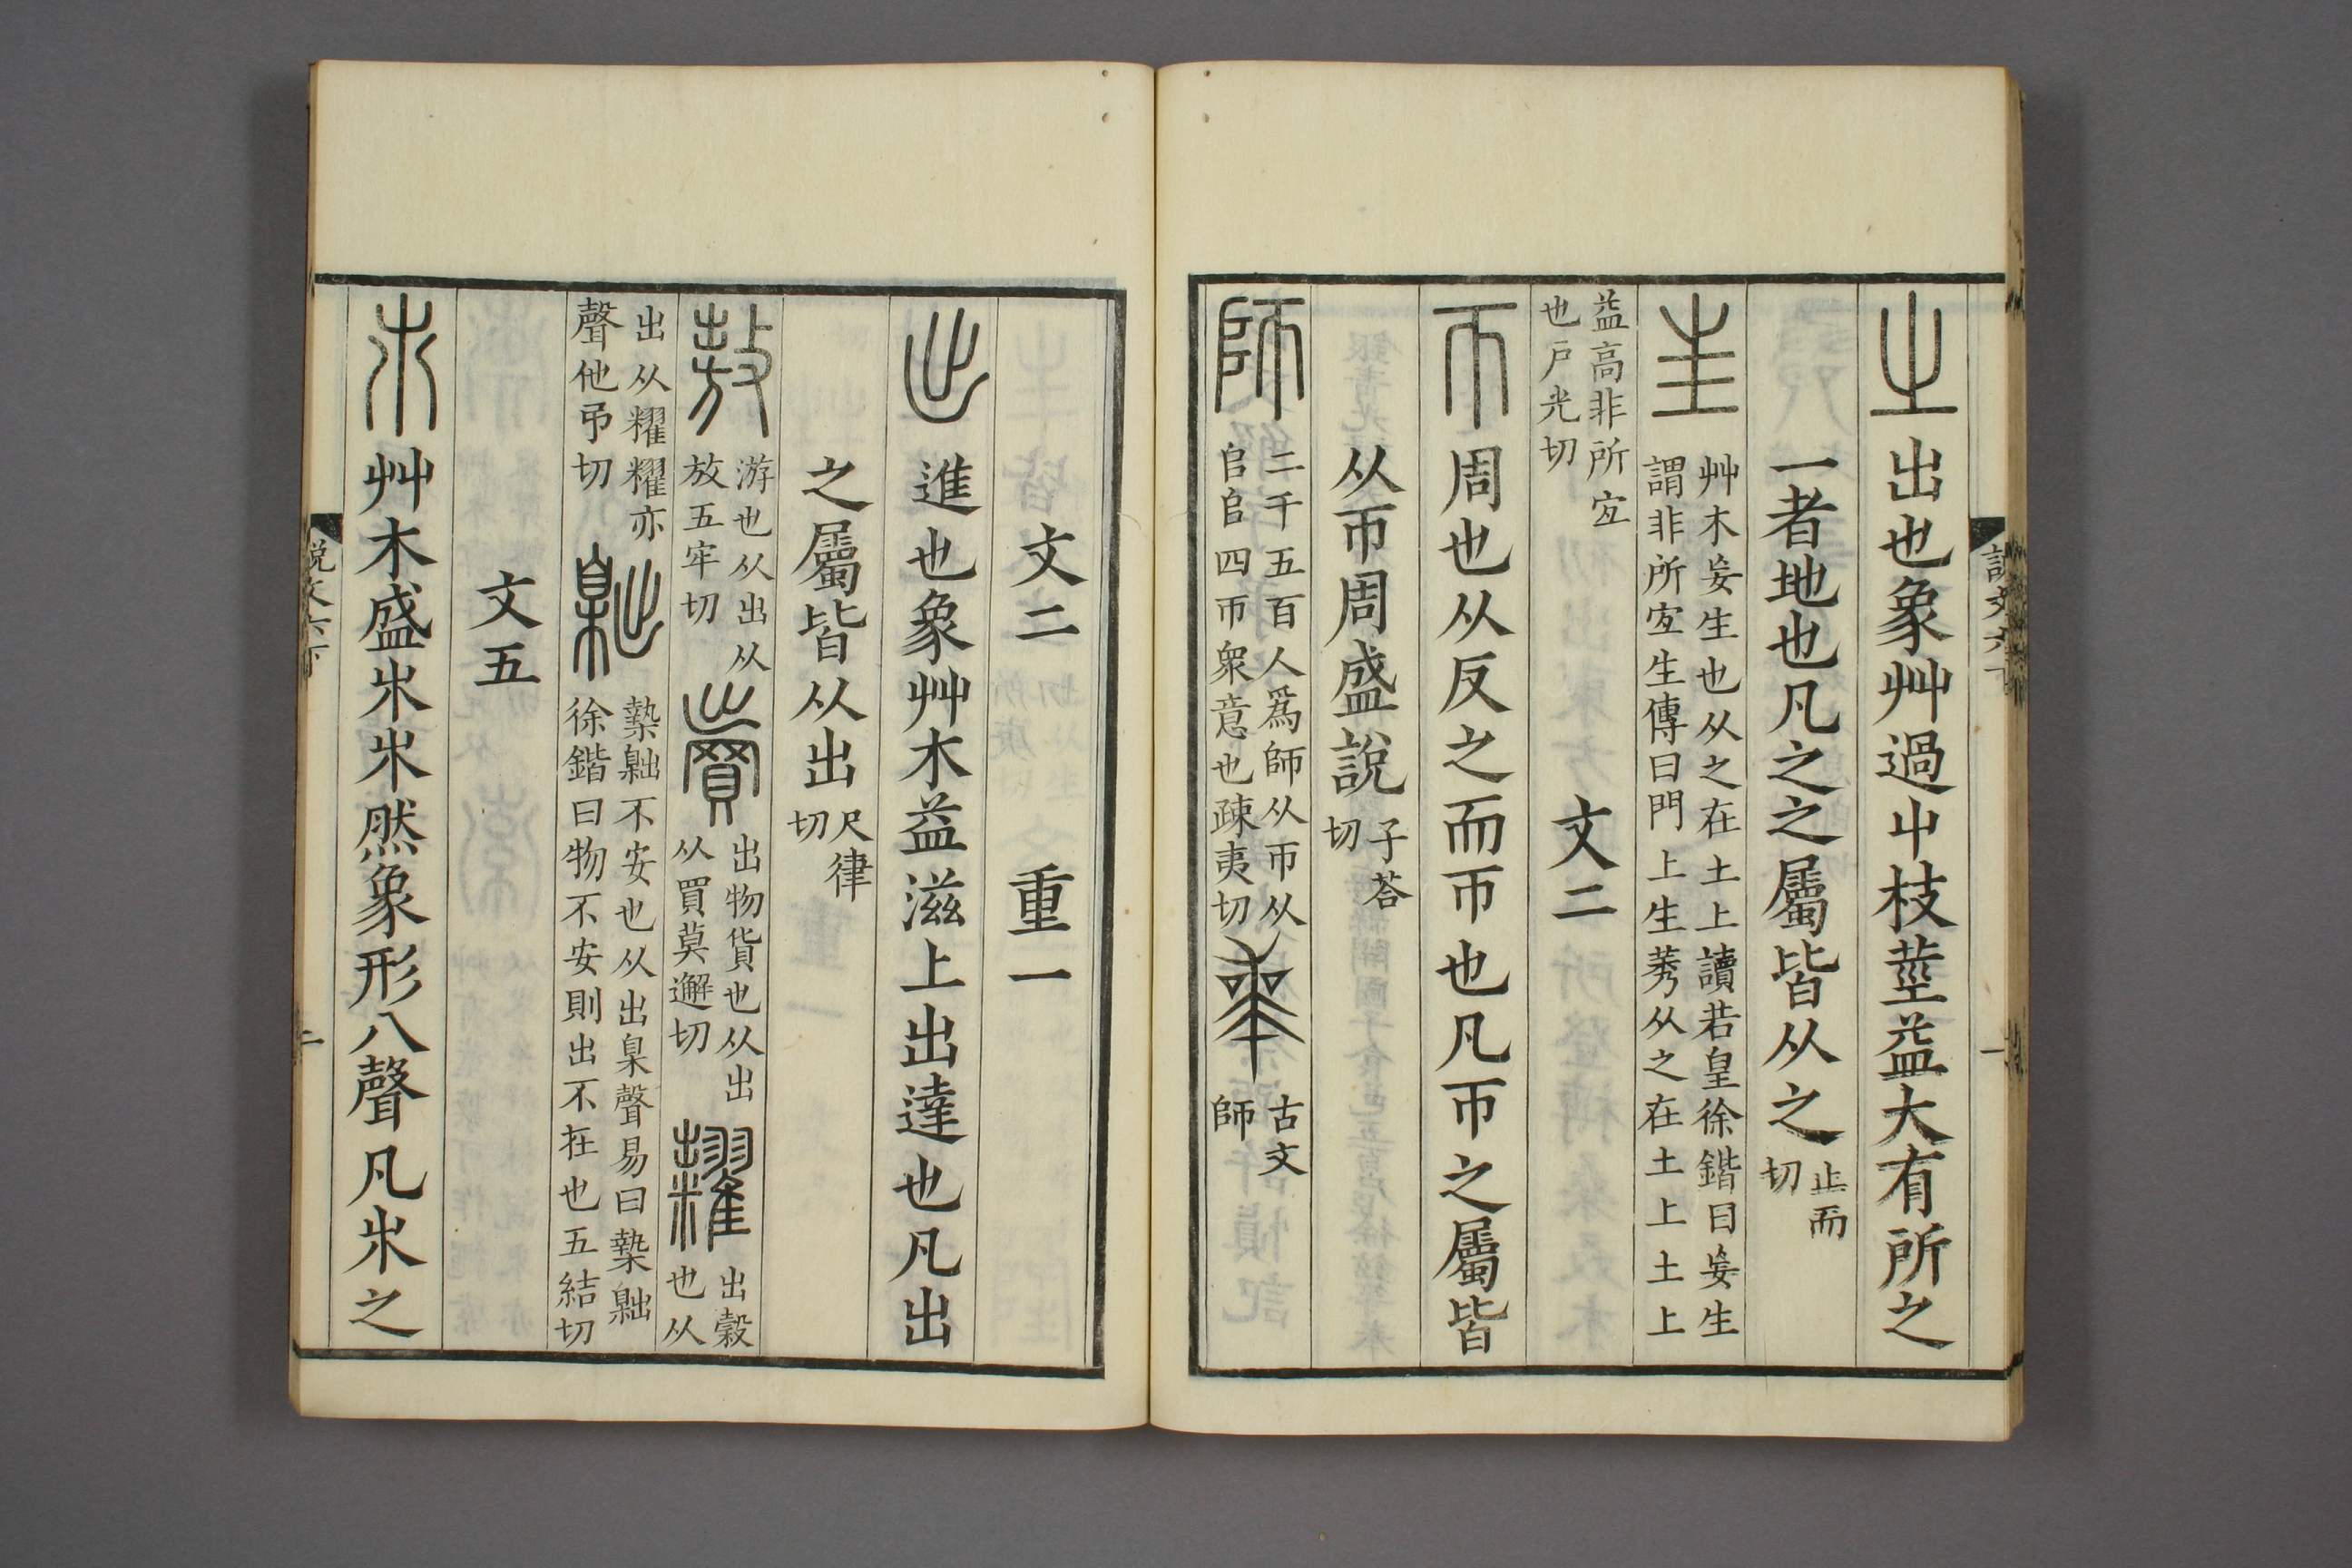 說文六下 一
㞢出也象艸過屮枝莖益大有所之
一者地也凡之之屬皆从之止而切
㞷艸木妄生也从之在土上讀若皇徐鍇曰妄生謂非所宜生傳曰門上生莠从之在土上土上
益高非所宜也戶光切 文二
帀周也从反之而帀也凡帀之屬皆
从帀周盛說子荅切
師二千五百人爲師从帀从𠂤𠂤四帀衆意也疎夷切 𠦵古文師
文二 重一
出進也象艸木益滋上出達也凡出
之屬皆从出尺律切
敖游也从出从放五牢切 賣出物貨也从出从買莫邂切 糶出穀也从
出从䊮䊮亦聲他弔切 𡴭槷𡴭不安也从出臬聲易曰槷𡴭徐鍇曰物不安則出不在也五結切
文五
𣎵艸木盛𣎵𣎵然象形八聲凡𣎵之
說文六下 二